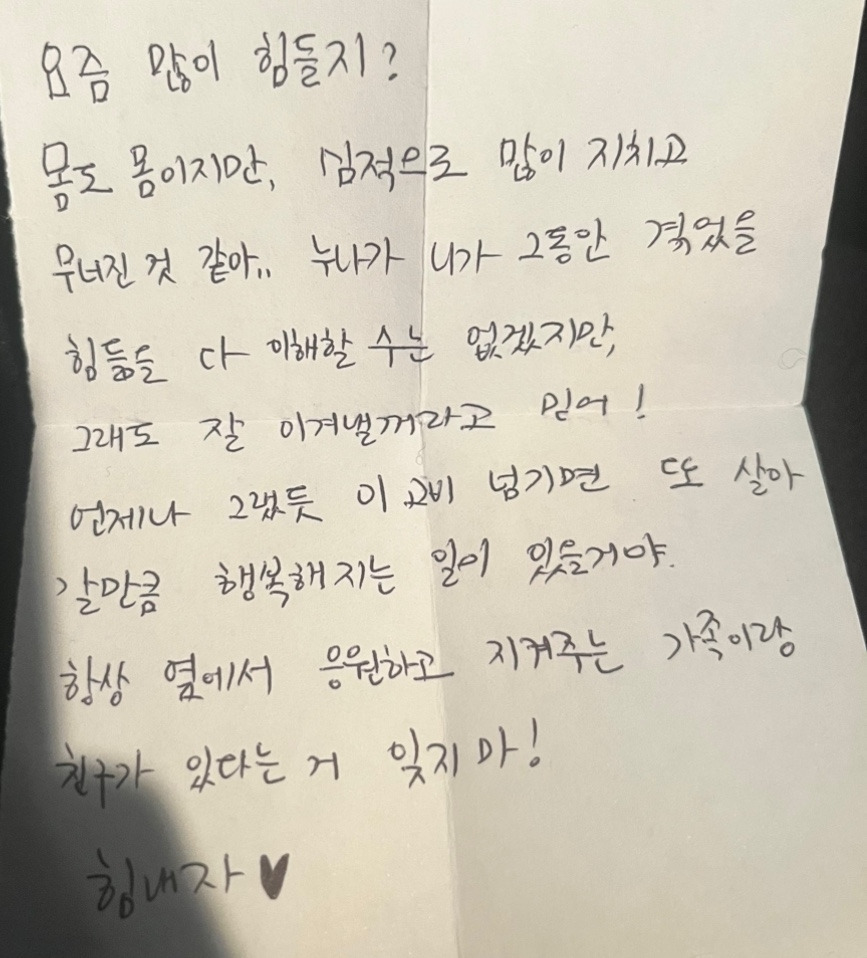 요즘 많이 힘들지?
몸도 몸이지만, 심적으로 많이 지치고
무너진 것 같아.. 누나가 니가 그동안 겪었을
힘듦을 다 이해할 수는 없겠지만,
그래도 잘 이겨낼꺼라고 믿어!
언제나 그랬듯 이 고비 넘기면 또 살아
갈만큼 행복해지는 일이 있을거야.
항상 옆에서 응원하고 지켜주는 가족이랑
친구가 있다는 거 잊지마!
힘내자♥